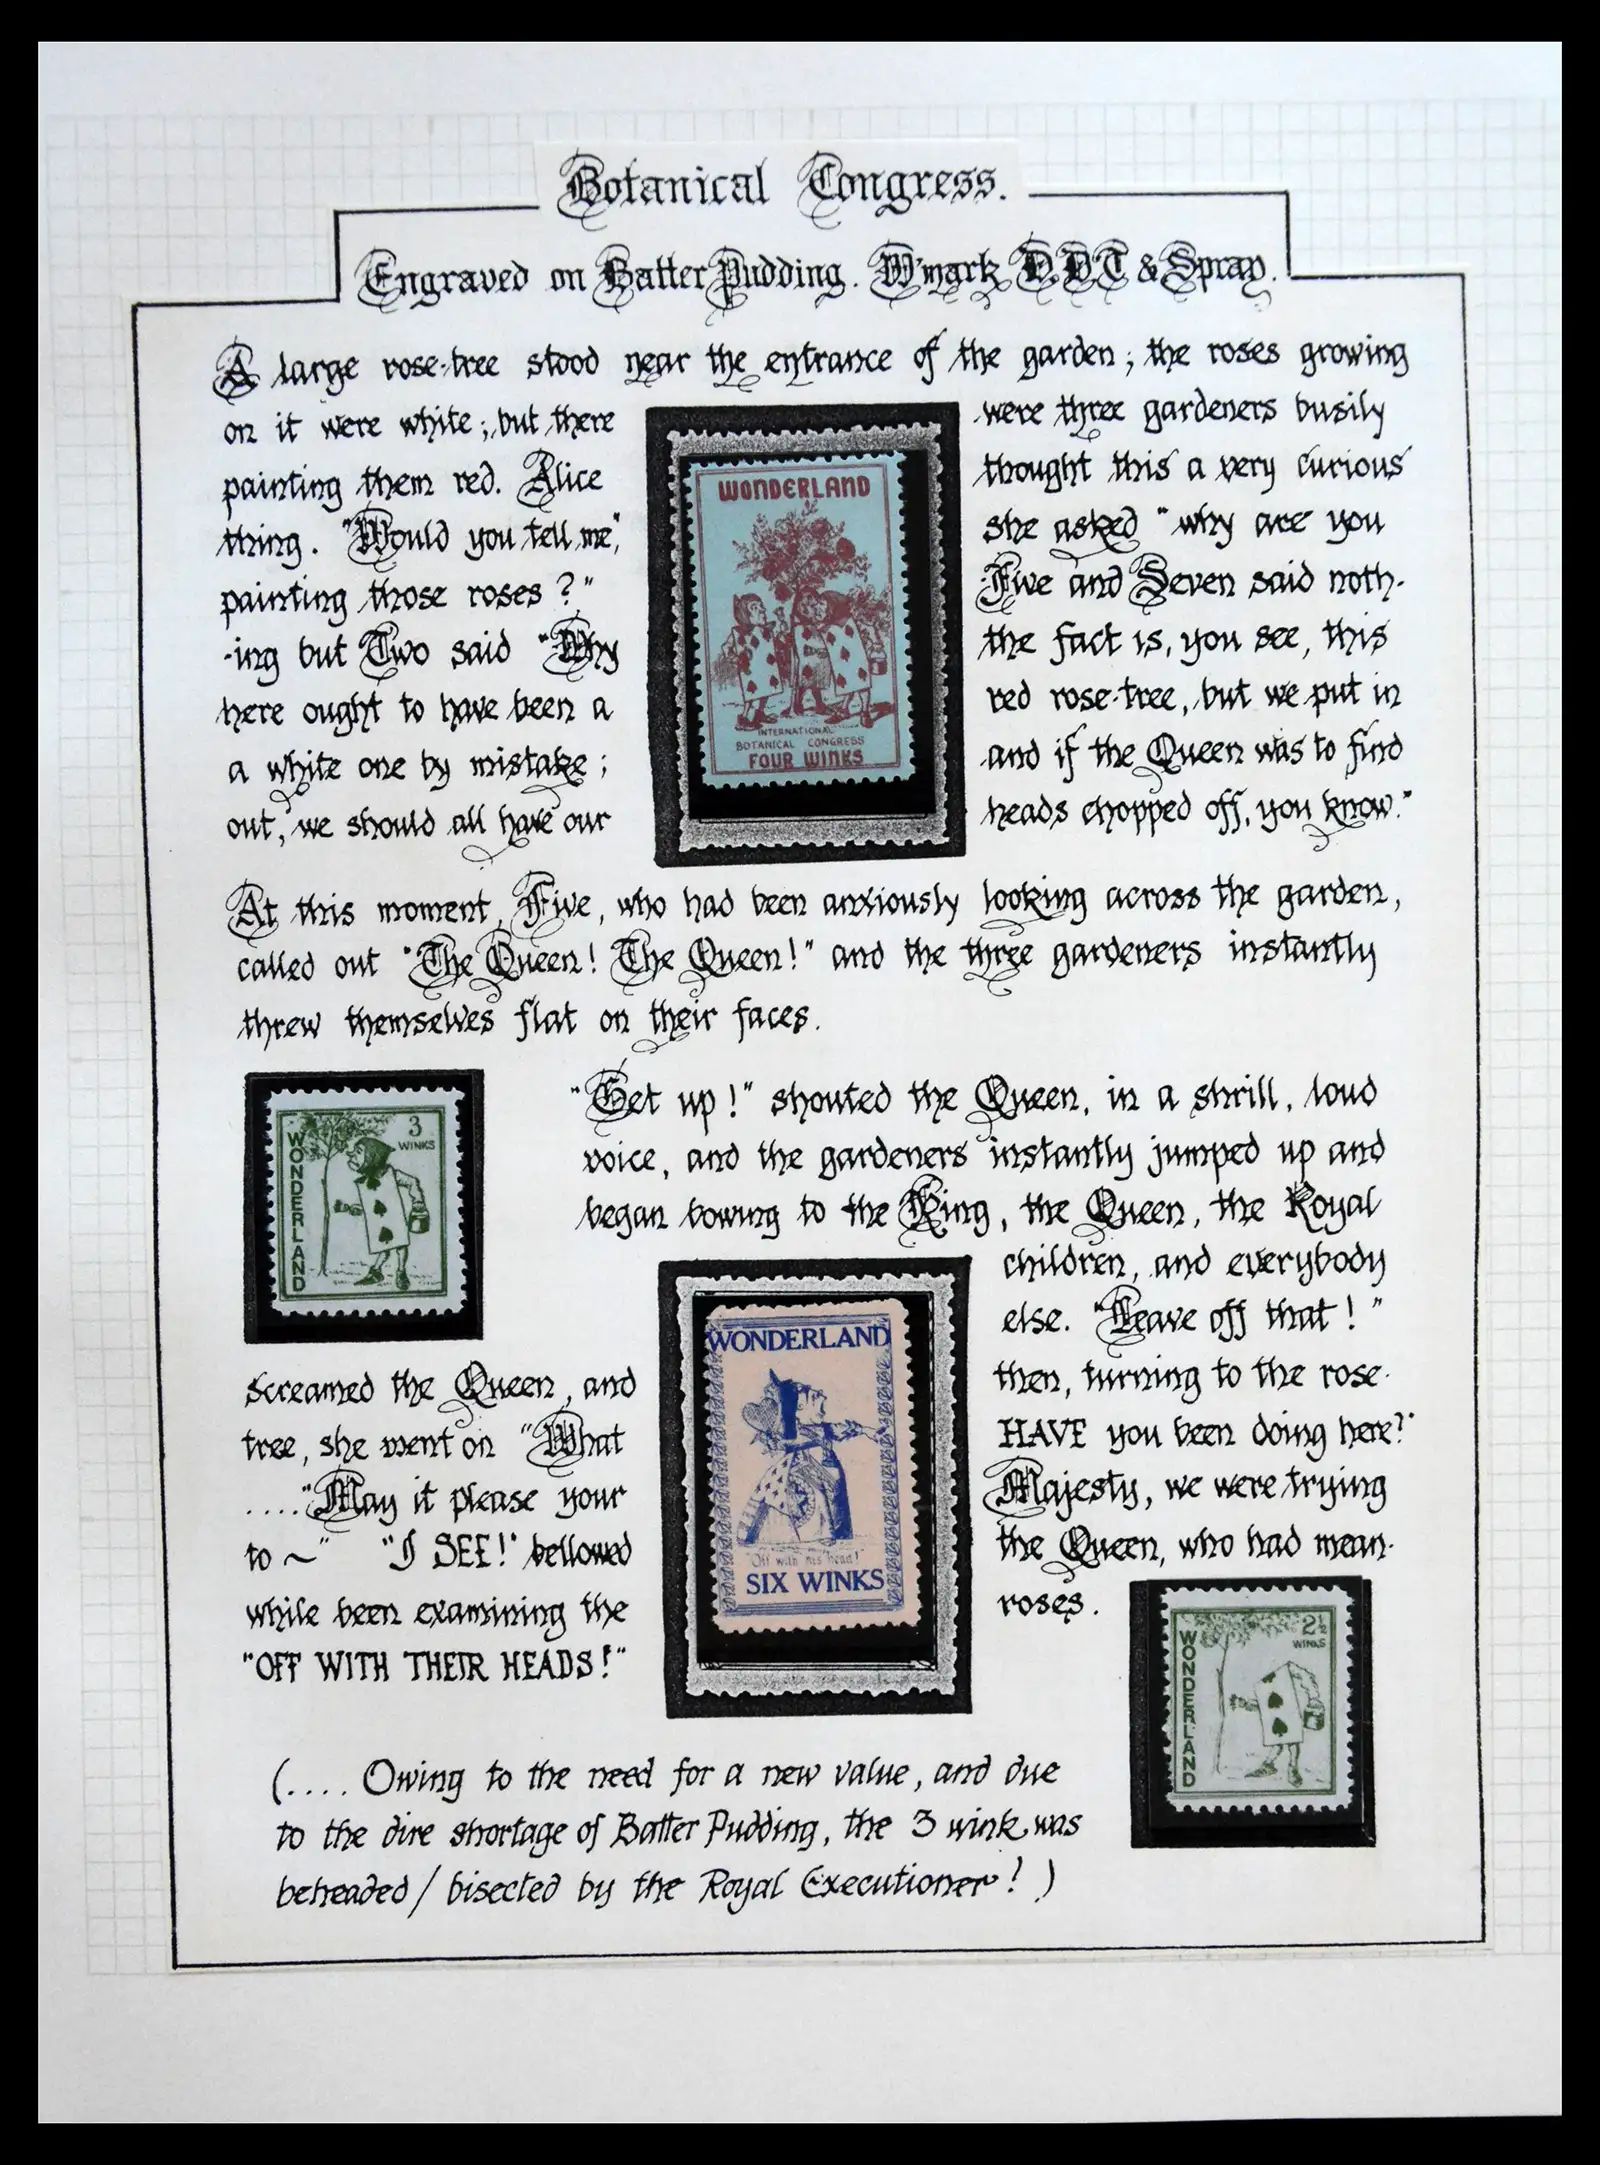 Botanical Congress.
Engraved on Batter Pudding. W'mark DDT & Spray.
A large rose-tree stood near the entrance of the garden; the roses growing
on it were white; but there were three gardeners busily
painting them red. Alice thought this a very curious
thing. "Would you tell me", she asked "why are you
painting those roses?" Five and Seven said noth-
-ing but Two said "Why the fact is, you see, this
here ought to have been a red rose-tree, but we put in
a white one by mistake; and if the Queen was to find
out, we should all have our heads chopped off, you know."
WONDERLAND
INTERNATIONAL
BOTANICAL CONGRESS
FOUR WINKS
At this moment, Five, who had been anxiously looking across the garden,
called out "The Queen! The Queen!" and the three gardeners instantly
threw themselves flat on their faces.
3
WINKS
WONDERLAND
"Get up!" shouted the Queen, in a shrill, loud
voice, and the gardeners instantly jumped up and
began bowing to the King, the Queen, the Royal
children, and everybody
else. "Leave off that!"
screamed the Queen, and then, turning to the rose-
tree, she went on "What HAVE you been doing here?"
...."May it please your Majesty, we were trying
to ~" "I SEE!" bellowed the Queen, who had mean-
while been examining the roses.
"OFF WITH THEIR HEADS!"
WONDERLAND
"Off with his head!"
SIX WINKS
2½
WINKS
WONDERLAND
(.... Owing to the need for a new value, and due
to the dire shortage of Batter Pudding, the 3 wink was
beheaded/bisected by the Royal Executioner!)